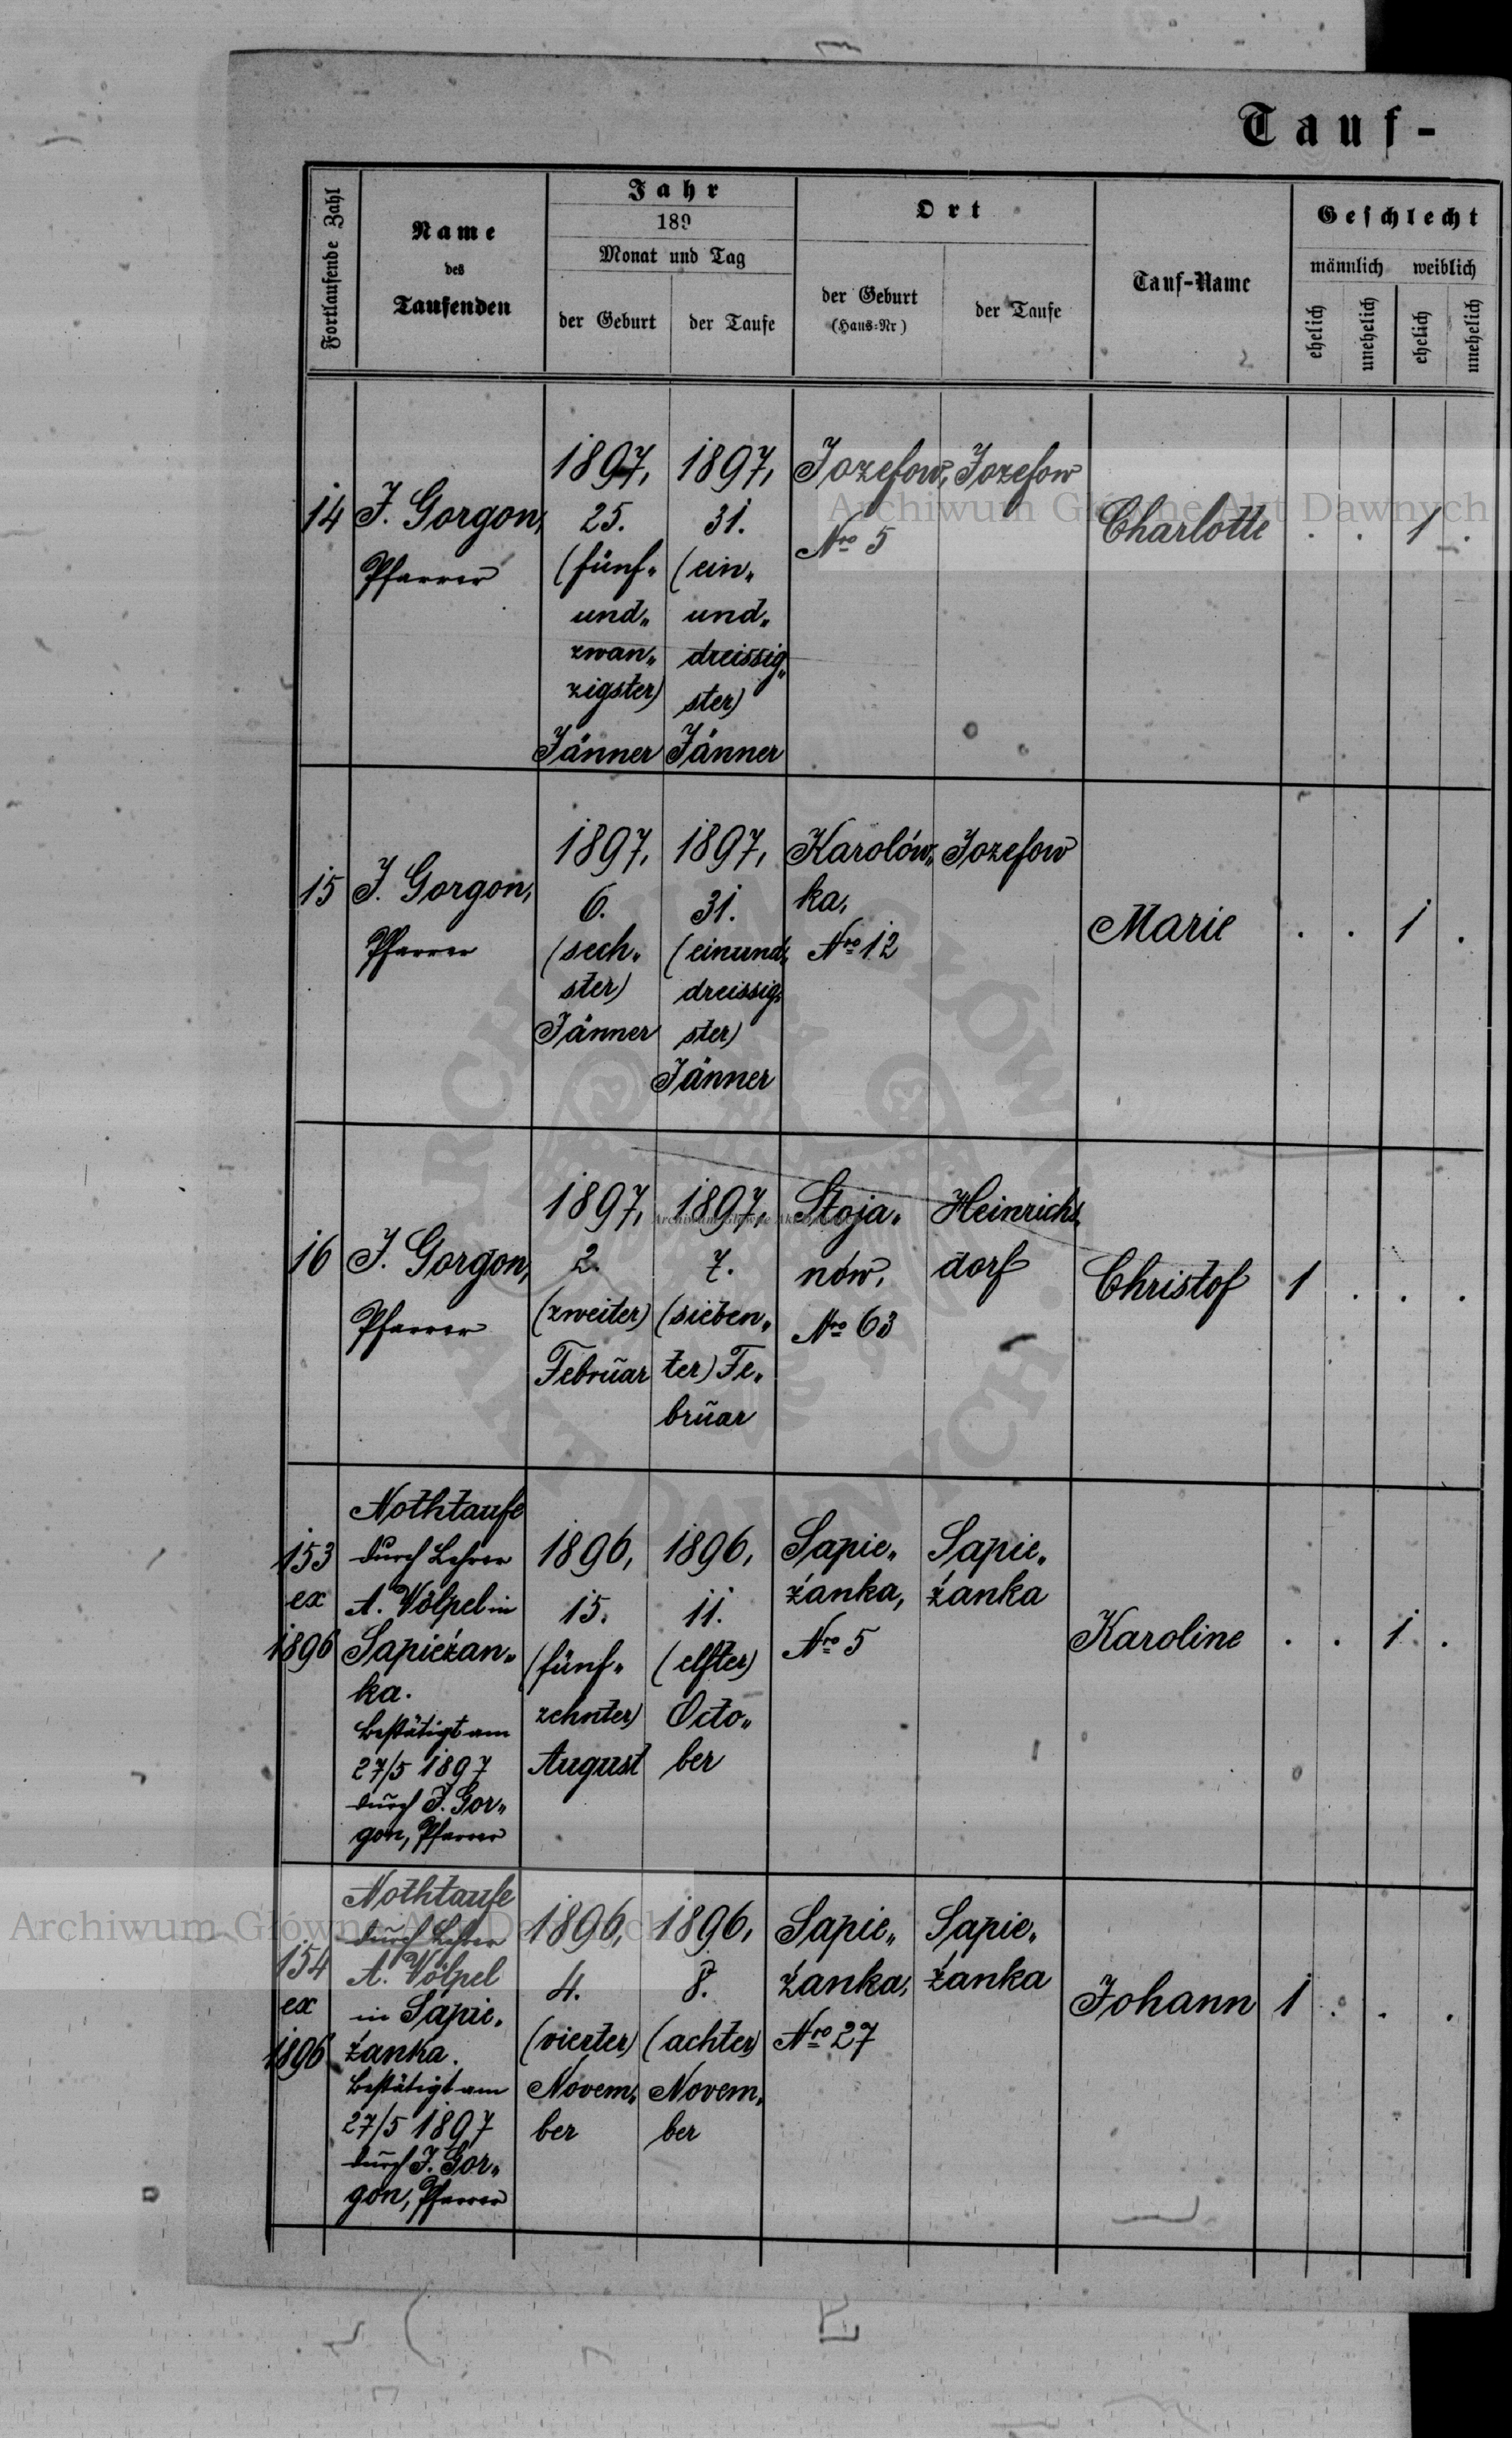 Tauf-
Fortlaufende Zahl
Name
des
Taufenden
Jahr
189
Monat und Tag
der Geburt
der Taufe
Ort
der Geburt
(Haus-Nr)
der Taufe
Tauf-Name
Geschlecht
männlich weiblich
ehelich
unehelich
ehelich
unehelich
14
J. Gorgon,
Pfarrer
1897,
25.
(fünf„
und„
zwan„
zigster)
Jänner
1897,
31.
(ein„
und„
dreissig„
ster)
Jänner
Jozefow,
Nro 5
Jozefow
Charlotte
. . 1 .
15
J. Gorgon,
Pfarrer
1897,
6.
(sech„
ster)
Jänner
1897,
31.
(einund„
dreissig„
ster)
Jänner
Karolów„
ka,
Nro 12
Jozefow
Marie
. . 1 .
16
J. Gorgon,
Pfarrer
1897,
2.
(zweiter)
Februar
1897,
7.
(sieben„
ter) Fe„
bruar
Stoja„
nów,
Nro 63
Heinrichs„
dorf
Christof
1 . . .
153
ex
1896
Nothtaufe
durch Lehrer
A. Völpel in
Sapieżan„
ka.
Bestätigt am
27/5 1897
durch J. Gor„
gon, Pfarrer
1896,
15.
(fünf„
zehnter)
August
1896,
11.
(elfter)
Octo„
ber
Sapie„
żanka,
Nro 5
Sapie„
żanka
Karoline
. . 1 .
154
ex
1896
Nothtaufe
durch Lehrer
A. Völpel
in Sapie„
żanka.
Bestätigt am
27/5 1897
durch J. Gor„
gon, Pfarrer
1896,
4.
(vierter)
Novem„
ber
1896,
8.
(achter)
Novem„
ber
Sapie„
żanka,
Nro 27
Sapie„
żanka
Johann
1 . . .
Archiwum Główne Akt Dawnych
Archiwum Główne Akt Dawnych
Archiwum Główne Akt Dawnych
ARCHIWUM GŁÓWNE AKT DAWNYCH